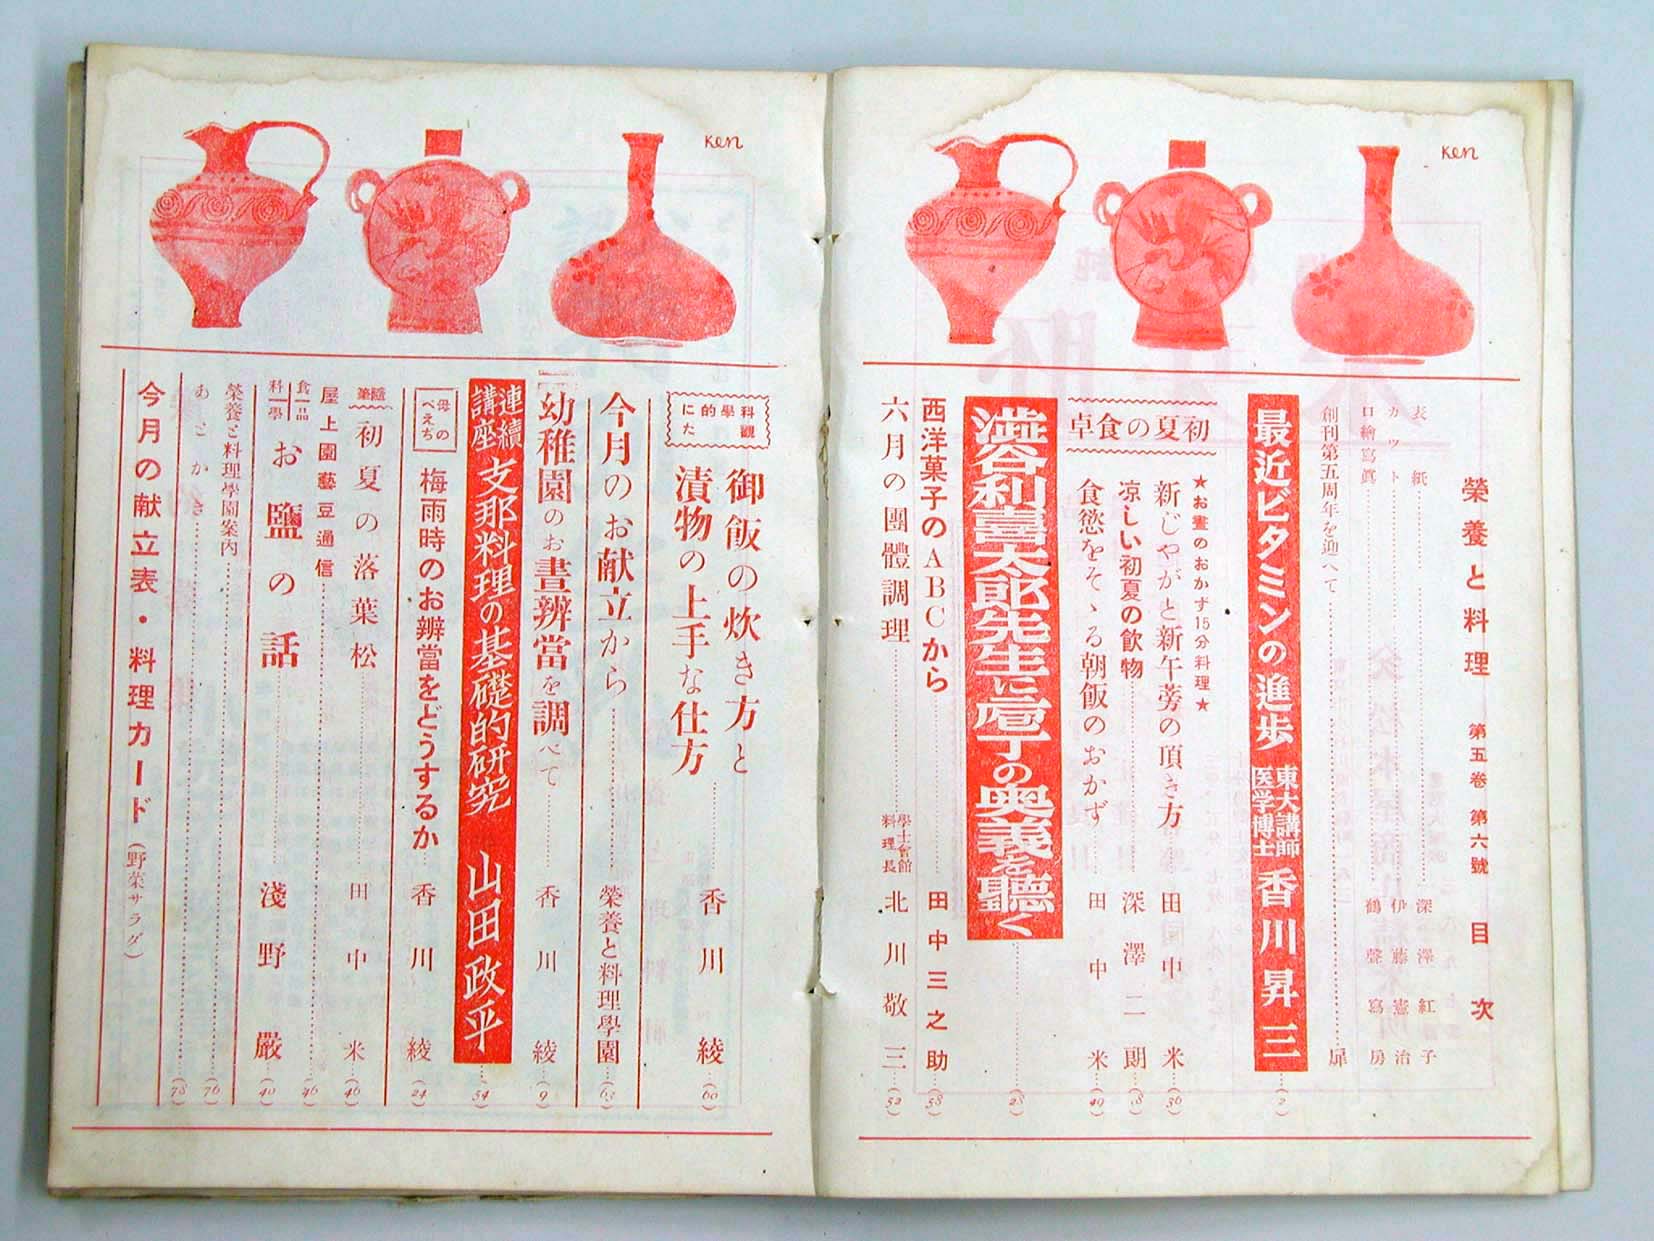 Ken
榮養と料理 第五巻 第六號 目次
表紙 深澤紅子
カット 伊藤憲治
口繪寫眞 鶴聲寫房
創刊第五周年を迎へて 扉
最近ビタミンの進歩 東大講師 医学博士 香川昇三 (2)
初夏の食卓
★お晝のおかず15分料理★
新じやがと新午蒡の頂き方 田中米 (36)
凉しい初夏の飲物 深澤二朗 (18)
食慾をそゝる朝飯のおかず 田中米 (49)
澁谷利喜太郎先生に庖丁の奥義を聽く (28)
西洋菓子のABCから 田中三之助 (58)
六月の團體調理 學士會館 料理長 北川敬三 (52)
Ken
科學的に觀た
御飯の炊き方と
漬物の上手な仕方 香川綾 (60)
今月のお献立から 榮養と料理學園 (63)
幼稚園のお晝辨當を調べて 香川綾 (9)
連續講座 支那料理の基礎的研究 山田政平 (54)
母のべえぢ 梅雨時のお辨當をどうするか 香川綾 (24)
隨筆 初夏の落葉松 田中米 (46)
屋上園藝豆通信 (46)
食品科學 お鹽の話 淺野嚴 (40)
榮養と料理學園案内 (76)
あとがき (78)
今月の献立表・料理カード(野菜サラダ)